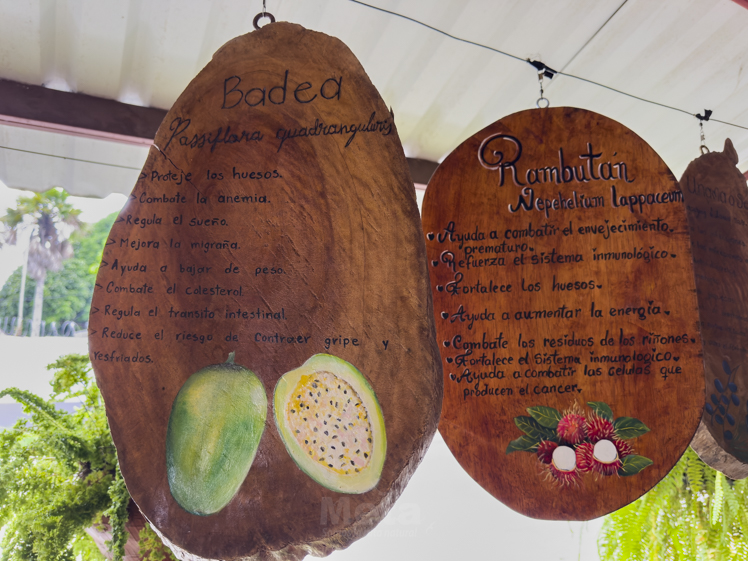 Badea
Passiflora quadrangularis
> Proteje los huesos.
> Combate la anemia.
> Regula el sueño.
> Mejora la migraña.
> Ayuda a bajar de peso.
> Combate el colesterol.
> Regula el transito intestinal
> Reduce el riesgo de Contraer gripe y
resfriados.
Rambután
Nepehelium lappaceum
♥ Ayuda a combatir el envejecimiento
prematuro.
♥ Refuerza el sistema inmunológico.
♥ Fortalece los huesos.
♥ Ayuda a aumentar la energía.
♥ Combate los residuos de los riñones.
♥ Fortalece el Sistema inmunologico.
♥ Ayuda a combatir las celulas que
producen el cancer.